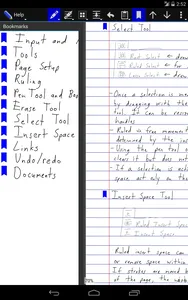 2:52
Help
Bookmarks
Input and
Tools
Page Setup
Ruling
Pen Tool and
Erase Tool
Select Tool
Insert Space
Links
Undo/redo
Documents
Select Tool
Rect Select
Select
Lasso Select
Once a selection is
by dragging with the
tool. It can be
handles.
Ruled is free
determined by the
Using the pen tool
clear it but does
If a selection is
space act only on the
Insert Space Tool
Ruled Insert
Insert Space
Ruled insert space can
or remove space within
If strokes are moved
of the page, the whole
70%